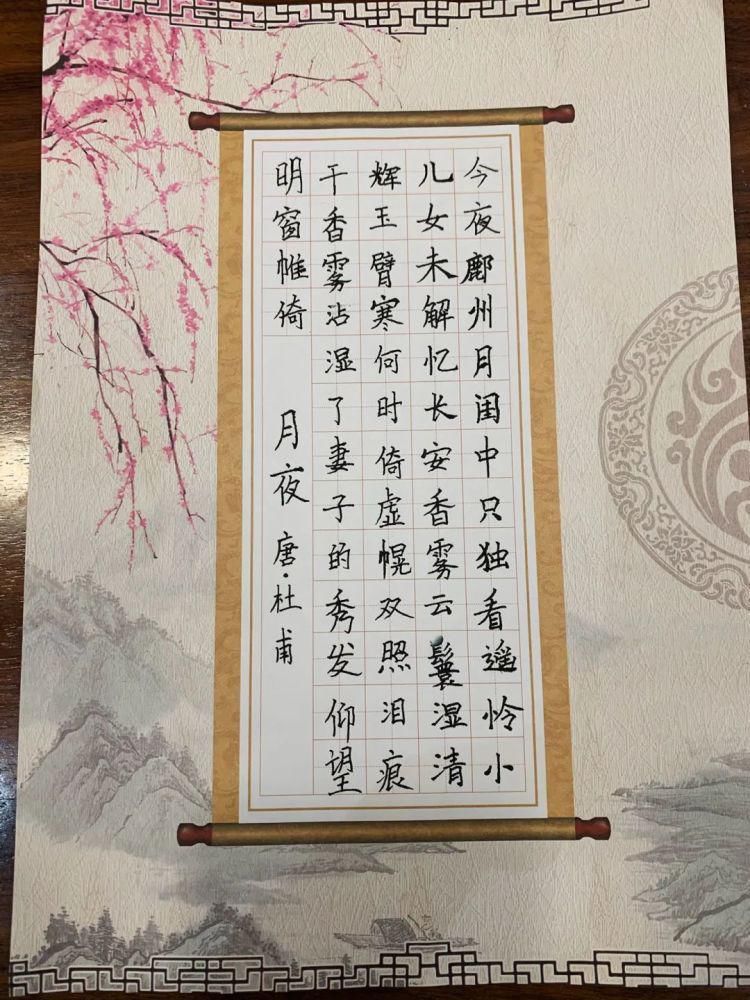 今夜鄜州月闺中只独看遥怜小
儿女未解忆长安香雾云鬟湿清
辉玉臂寒何时倚虚幌双照泪痕
干香雾沾湿了妻子的秀发仰望
明窗帷倚
月夜 唐·杜甫